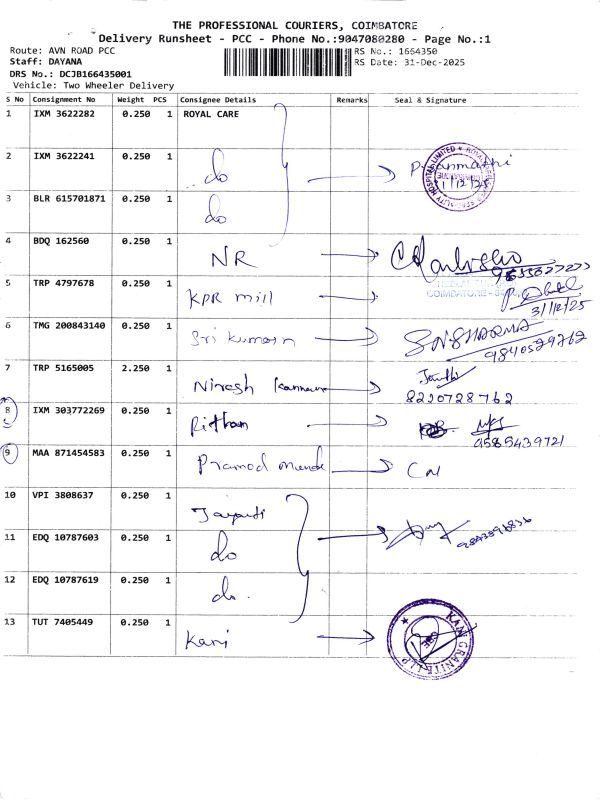 THE PROFESSIONAL COURIERS, COIMBATORE
Delivery Runsheet - PCC - Phone No.:9047080280 - Page No.:1
Route: AVN ROAD PCC
RS No.: 1664350
Staff: DAYANA
RS Date: 31-Dec-2025
DRS No.: DCJB166435001
Vehicle: Two Wheeler Delivery
S No Consignment No Weight PCS Consignee Details Remarks Seal & Signature
1 IXM 3622282 0.250 1 ROYAL CARE
2 IXM 3622241 0.250 1 do
3 BLR 615701871 0.250 1 do
4 BDQ 162560 0.250 1 NR
5 TRP 4797678 0.250 1 KPR mill
31/12/25
6 TMG 200843140 0.250 1 Sri kumaran
9840529762
7 TRP 5165005 2.250 1 Niresh
8220728762
8 IXM 303772269 0.250 1 Ritham
9585439721
9 MAA 871454583 0.250 1 Pramod
10 VPI 3808637 0.250 1
11 EDQ 10787603 0.250 1 do
12 EDQ 10787619 0.250 1 do
13 TUT 7405449 0.250 1 Kani
KANI GRANITE LLP